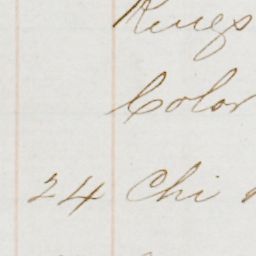 Kings
Color
24 Chi